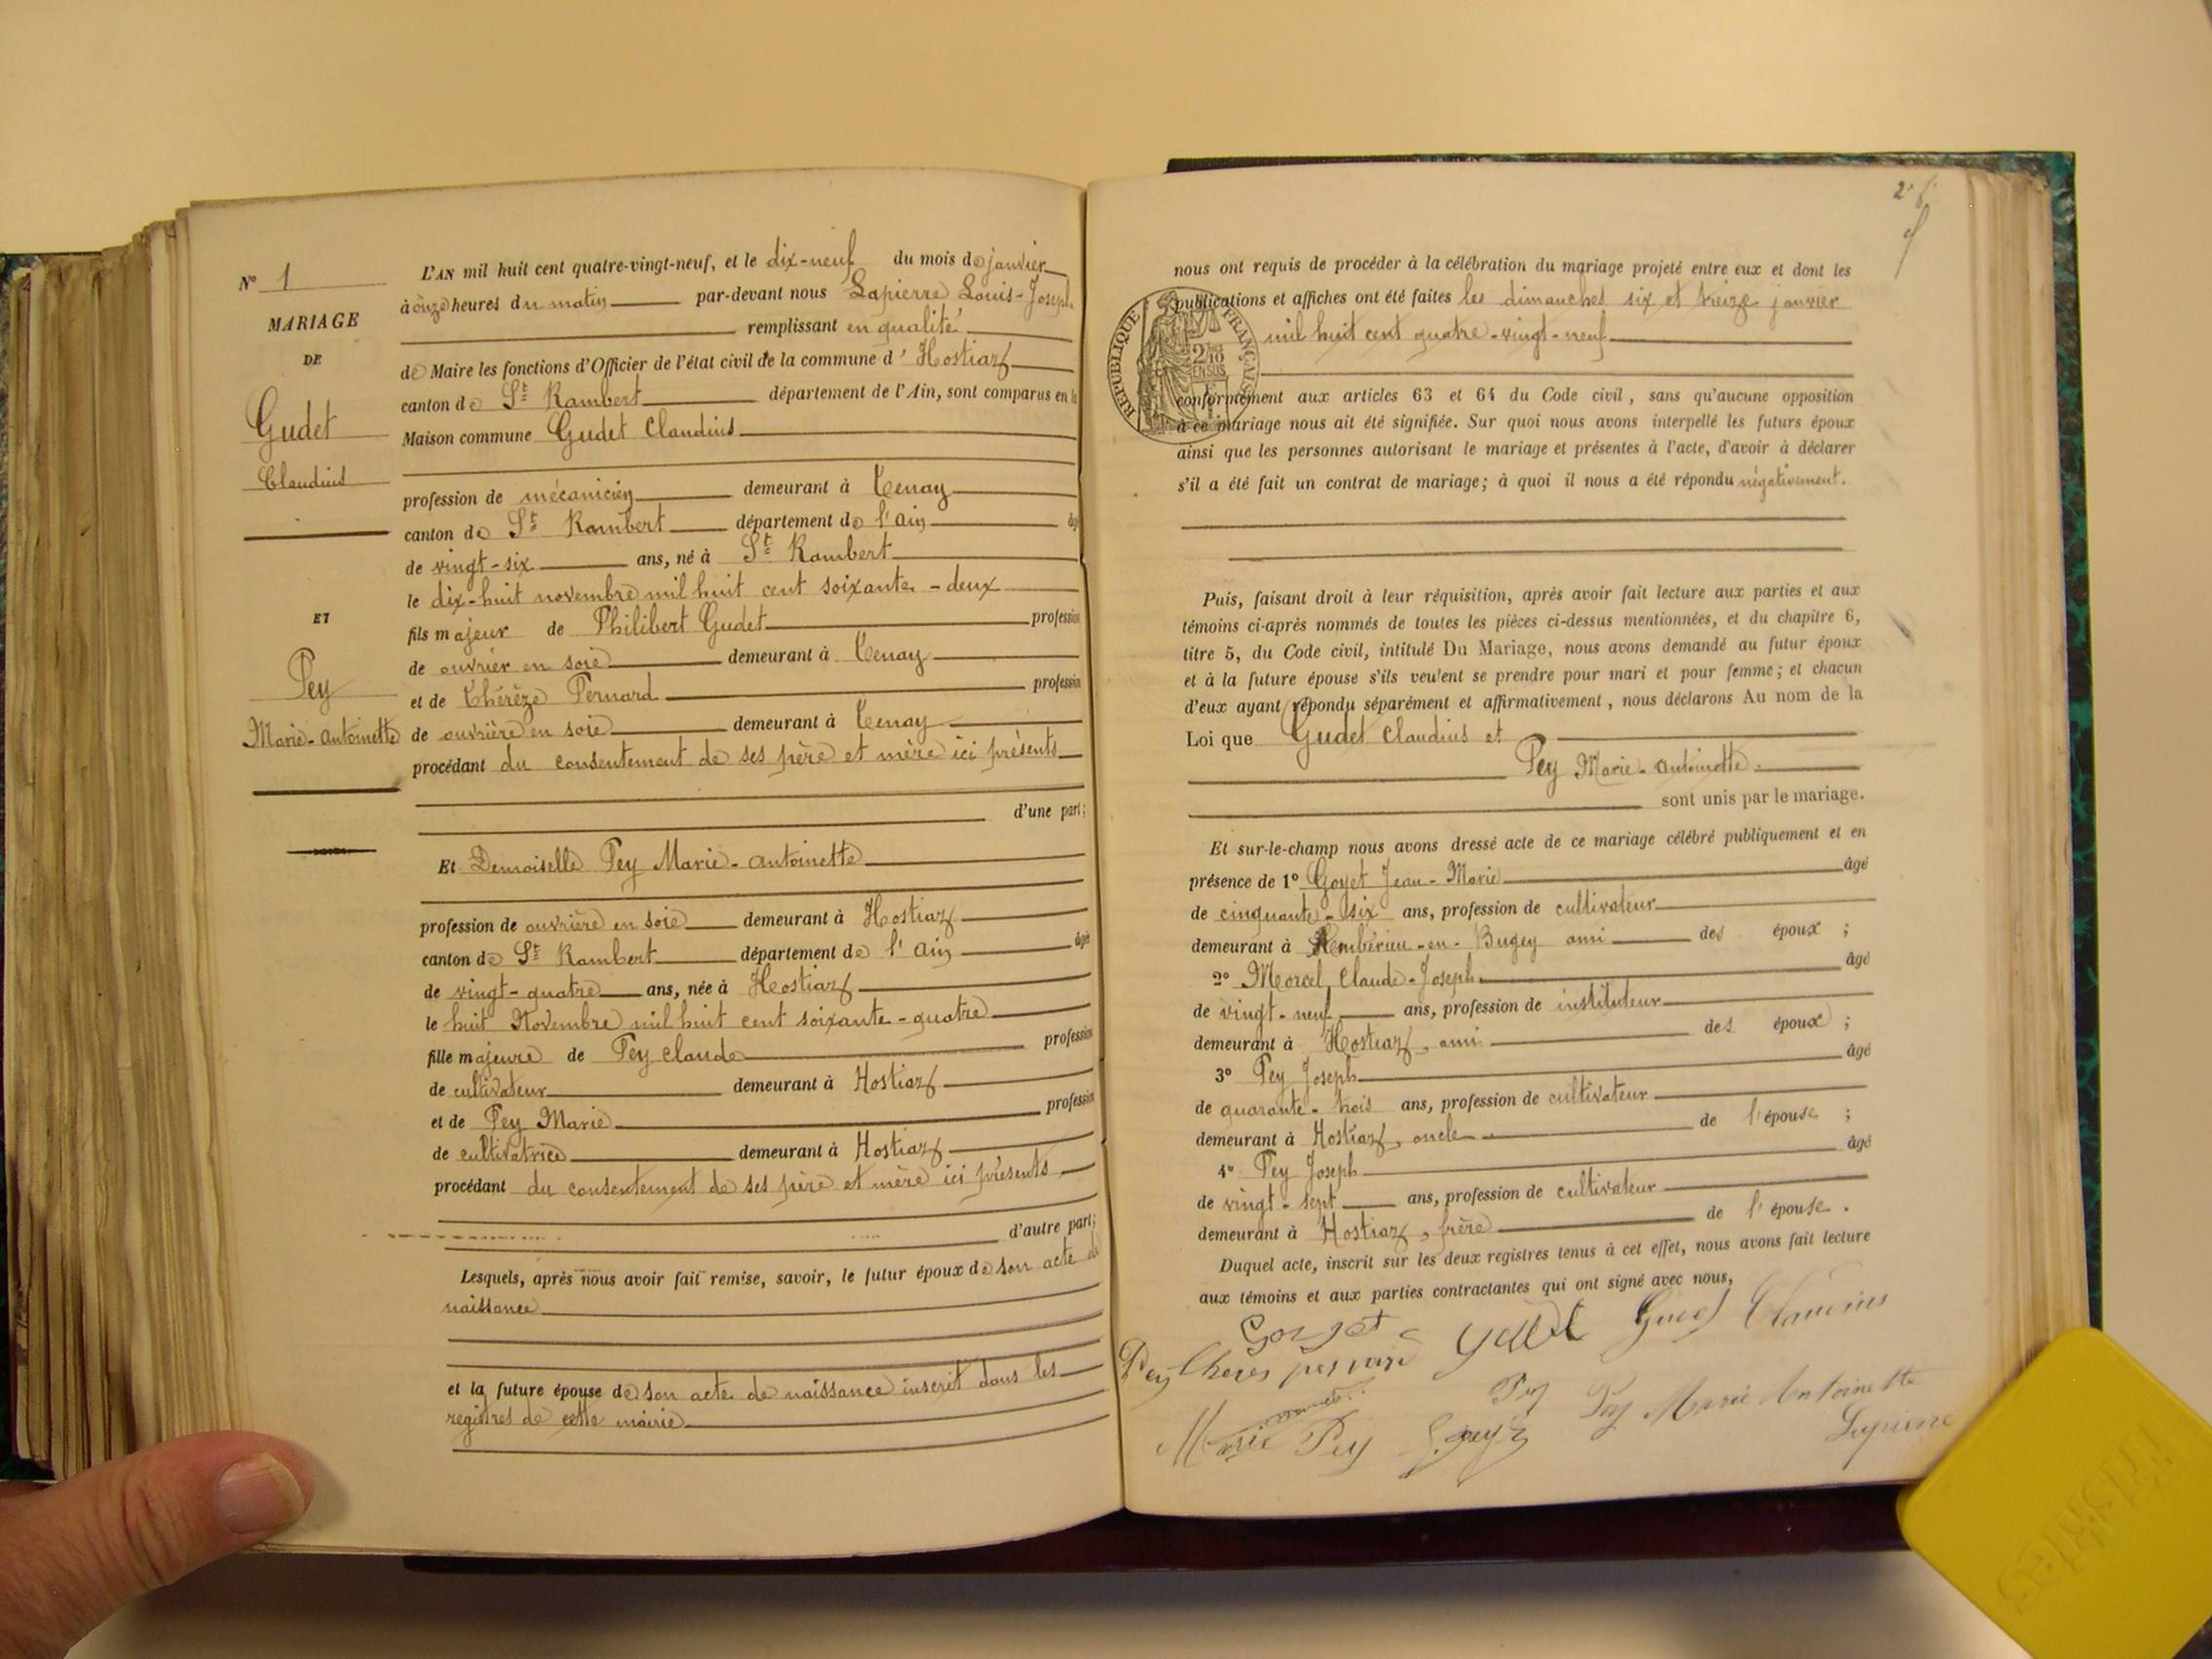 N° 1
MARIAGE
DE
Gudet
Claudius
ET
Pey
Marie-Antoinette
L'AN mil huit cent quatre-vingt-neuf, et le dix-neuf du mois de janvier
à onze heures du matin par-devant nous Lapierre Louis-Joseph
remplissant en qualité
de Maire les fonctions d'Officier de l'état civil de la commune d'Hostiaz
canton de St Rambert département de l'Ain, sont comparus en la
Maison commune Gudet Claudius
profession de mécanicien demeurant à Tenay
canton de St Rambert département de l'Ain âgé
de vingt-six ans, né à St Rambert
le dix-huit novembre mil huit cent soixante-deux
fils majeur de Philibert Gudet profession
de ouvrier en soie demeurant à Tenay
et de Thérèze Pernard profession
de ouvrière en soie demeurant à Tenay
procédant du consentement de ses père et mère ici présents
d'une part;
Et Demoiselle Pey Marie-Antoinette
profession de ouvrière en soie demeurant à Hostiaz
canton de St Rambert département de l'Ain âgée
de vingt-quatre ans, née à Hostiaz
le huit Novembre mil huit cent soixante-quatre
fille majeure de Pey Claude profession
de cultivateur demeurant à Hostiaz
et de Pey Marie profession
de cultivatrice demeurant à Hostiaz
procédant du consentement de ses père et mère ici présents
d'autre part;
Lesquels, après nous avoir fait remise, savoir, le futur époux de son acte de
naissance
et la future épouse de son acte de naissance inscrit dans les
registres de cette mairie
nous ont requis de procéder à la célébration du mariage projeté entre eux et dont les
publications et affiches ont été faites les dimanches six et treize janvier
mil huit cent quatre-vingt-neuf
RÉPUBLIQUE FRANÇAISE
conformément aux articles 63 et 64 du Code civil, sans qu'aucune opposition
à ce mariage nous ait été signifiée. Sur quoi nous avons interpellé les futurs époux
ainsi que les personnes autorisant le mariage et présentes à l'acte, d'avoir à déclarer
s'il a été fait un contrat de mariage; à quoi il nous a été répondu négativement.
Puis, faisant droit à leur réquisition, après avoir fait lecture aux parties et aux
témoins ci-après nommés de toutes les pièces ci-dessus mentionnées, et du chapitre 6,
titre 5, du Code civil, intitulé Du Mariage, nous avons demandé au futur époux
et à la future épouse s'ils veulent se prendre pour mari et pour femme; et chacun
d'eux ayant répondu séparément et affirmativement, nous déclarons Au nom de la
Loi que Gudet Claudius et
Pey Marie-Antoinette
sont unis par le mariage.
Et sur-le-champ nous avons dressé acte de ce mariage célébré publiquement et en
présence de 1° Goyet Jean-Marie âgé
de cinquante-six ans, profession de cultivateur
demeurant à Ambérieu-en-Bugey ami des époux ;
2° Morcel Claude-Joseph âgé
de vingt-neuf ans, profession de instituteur
demeurant à Hostiaz, ami des époux ;
3° Pey Joseph âgé
de quarante-trois ans, profession de cultivateur
demeurant à Hostiaz, oncle de l'épouse ;
4° Pey Joseph âgé
de vingt-sept ans, profession de cultivateur
demeurant à Hostiaz, frère de l'épouse.
Duquel acte, inscrit sur les deux registres tenus à cet effet, nous avons fait lecture
aux témoins et aux parties contractantes qui ont signé avec nous,
Claudius
Pey
Pey Marie Antoinette
Marie Pey
Lapierre